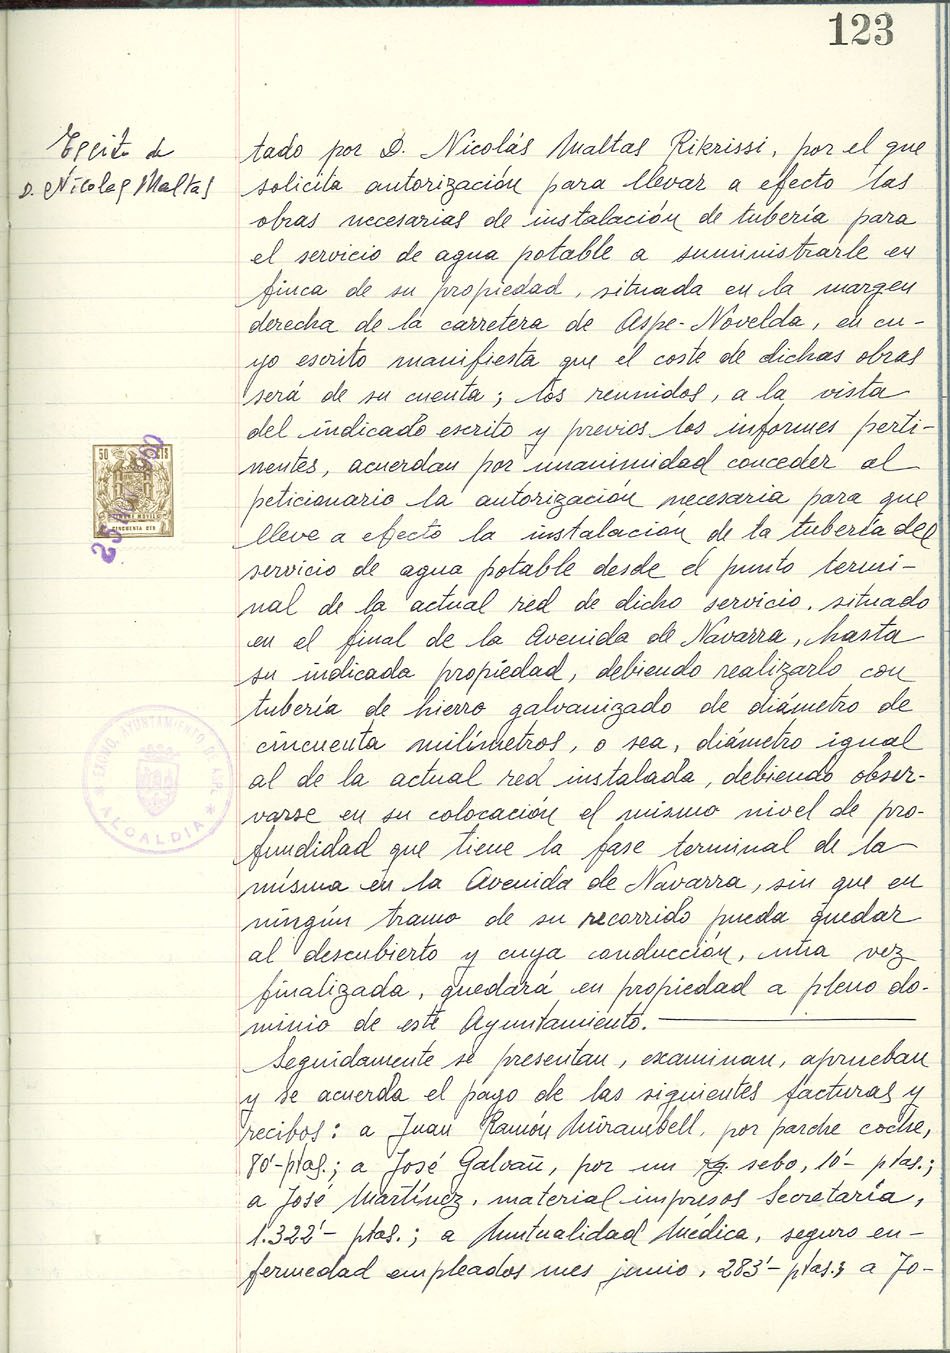 123
Escrito de
D. Nicolas Maltas
tado por D. Nicolás Maltas Rikrissi, por el que
solicita autorización para llevar a efecto las
obras necesarias de instalación de tubería para
el servicio de agua potable a suministrarle en
finca de su propiedad, situada en la margen
derecha de la carretera de Aspe-Novelda, en cu-
yo escrito manifiesta que el coste de dichas obras
será de su cuenta; los reunidos, a la vista
del indicado escrito y previos los informes perti-
nentes, acuerdan por unanimidad conceder al
peticionario la autorización necesaria para que
lleve a efecto la instalación de la tubería del
servicio de agua potable desde el punto termi-
nal de la actual red de dicho servicio, situado
en el final de la Avenida de Navarra, hasta
su indicada propiedad, debiendo realizarlo con
tubería de hierro galvanizado de diámetro de
cincuenta milímetros, o sea, diámetro igual
al de la actual red instalada, debiendo obser-
varse en su colocación el mismo nivel de pro-
fundidad que tiene la fase terminal de la
misma en la Avenida de Navarra, sin que en
ningún tramo de su recorrido pueda quedar
al descubierto y cuya conducción, una vez
finalizada, quedará en propiedad a pleno do-
minio de este Ayuntamiento.
Seguidamente se presentan, examinan, aprueban
y se acuerda el pago de las siguientes facturas y
recibos: a Juan Ramón Mirambell, por parche coche,
80'- ptas.; a José Galvañ, por un kg. sebo, 10'- ptas.;
a José Martínez, material impresos Secretaría,
1.322'- ptas.; a Mutualidad Médica, seguro en-
fermedad empleados mes junio, 283'- ptas.; a Jo-
50 CTS
CINCUENTA CTS
25
EXCMO. AYUNTAMIENTO DE
* ALCALDIA *